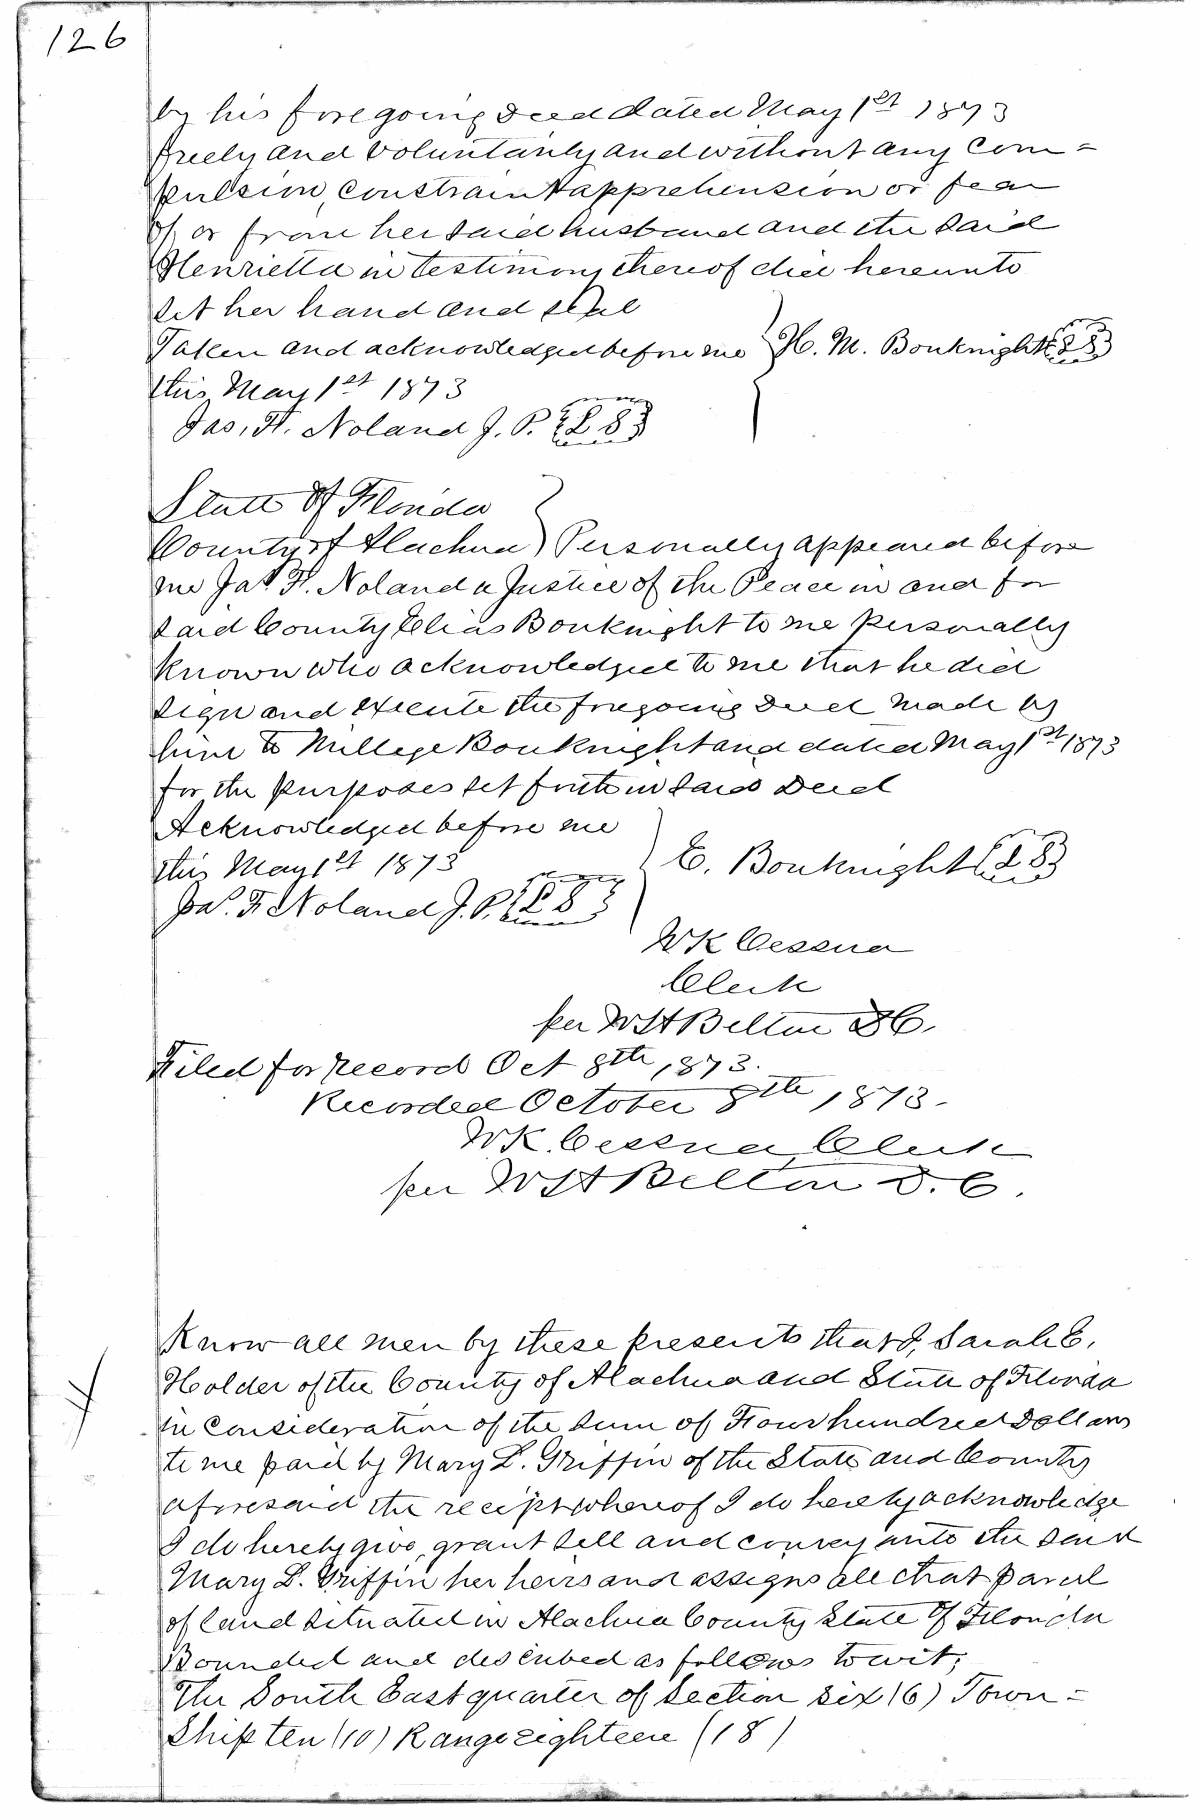 126
by his foregoing Deed dated May 1st 1873
freely and voluntarily and without any com=
pulsion, constraint apprehension or fear
of or from her said husband and the said
Henrietta in testimony thereof did hereunto
set her hand and seal
Taken and acknowledged before me } H. M. Bouknight {L S}
this May 1st 1873
Jas. F. Noland J. P. {L S}
State of Florida
County of Alachua } Personally appeared before
me Jas F. Noland a Justice of the Peace in and for
said County Elias Bouknight to me personally
known who acknowledged to me that he did
sign and execute the foregoing Deed made by
him to Millege Bouknight and dated May 1st 1873
for the purposes set forth in said Deed
Acknowledged before me
this May 1st 1873 } E. Bouknight {L S}
Jas. F. Noland J. P. {L S}
W K Cessna
Clerk
per W H Belton D C.
Filed for record Oct 8th, 1873.
Recorded October 8th, 1873.
W K. Cessna, Clerk
per W H Belton D. C.
Know all men by these presents that I, Sarah E.
Holder of the County of Alachua and State of Florida
in consideration of the sum of Four hundred Dollars
to me paid by Mary L. Griffin of the State and County
aforesaid the recipt whereof I do hereby acknowledge
I do hereby give, grant sell and convey unto the said
Mary L. Griffin her heirs and assigns all that parcel
of land situated in Alachua County State of Florida
Bounded and described as follows towit;
The South East quarter of Section six (6) Town=
Ship ten (10) Range eighteen (18)